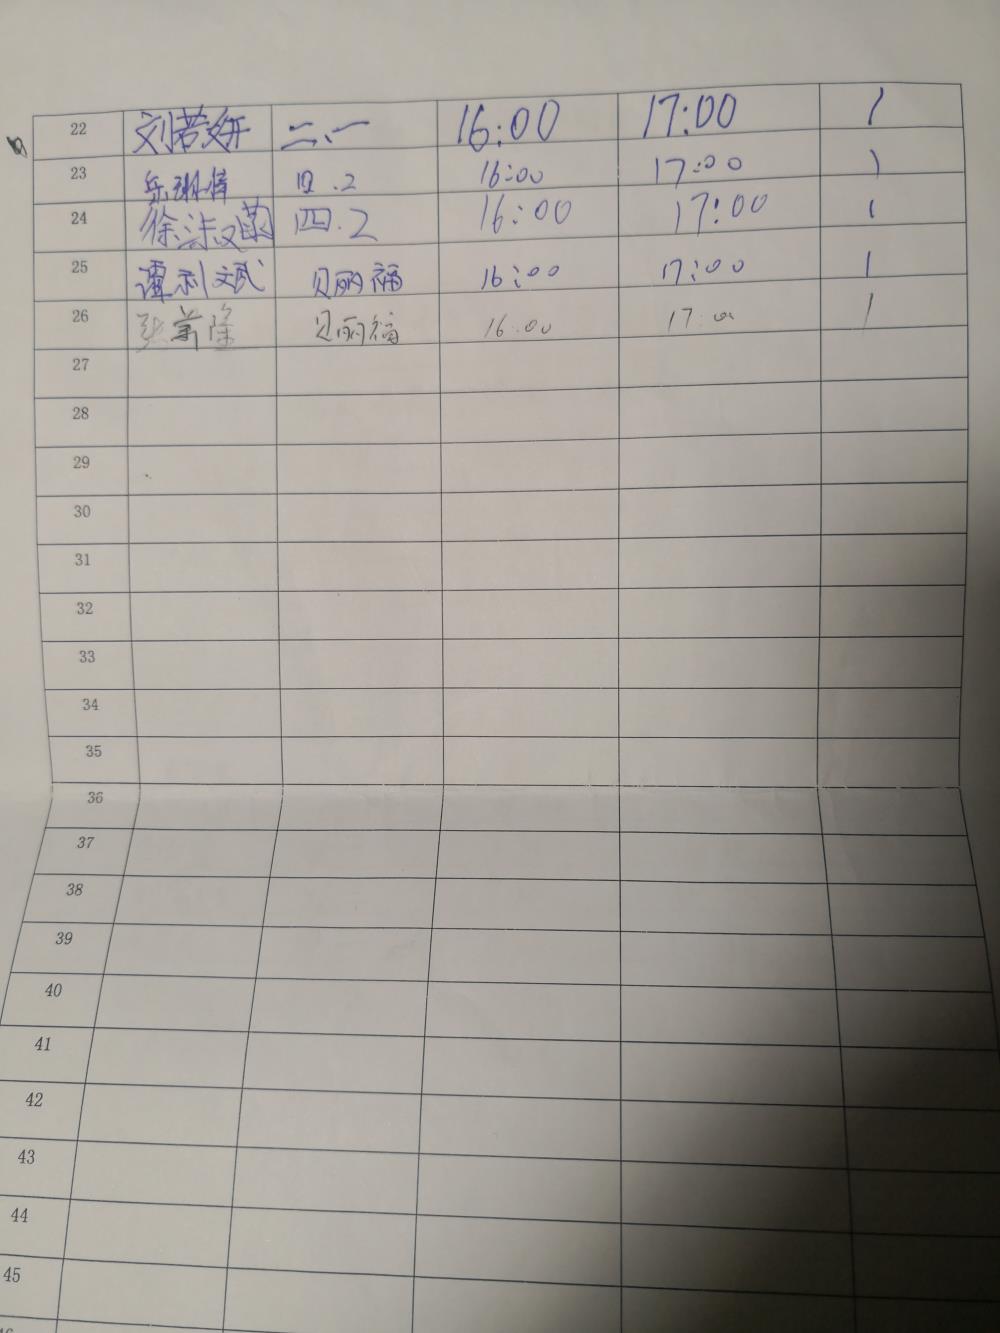 22 刘若妍 二、一 16:00 17:00 1
23 乐琳 四.2 16:00 17:00 1
24 徐 四.2 16:00 17:00 1
25 谭利斌 贝丽福 16:00 17:00 1
26 张 隆 贝丽福 16:00 17:00 1
27
28
29
30
31
32
33
34
35
36
37
38
39
40
41
42
43
44
45